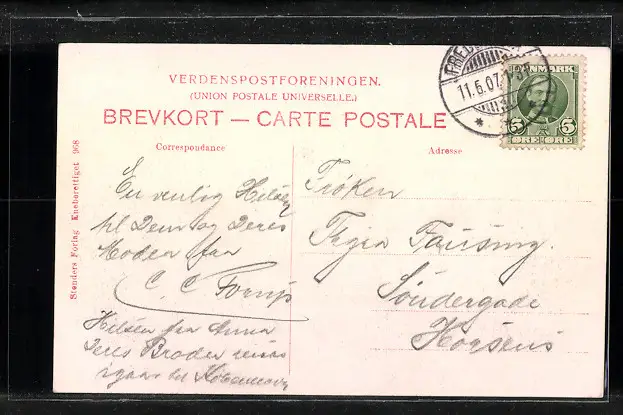 VERDENSPOSTFORENINGEN.
(UNION POSTALE UNIVERSELLE.)
BREVKORT — CARTE POSTALE
Correspondance
Adresse
En venlig Hilsen
til Dem og Deres
Moder fra
C. C. Torup
Hilsen fra Anna
Deres Broder rejste
igaar til København
Frøken
Søndergade
Horsens
Stenders Forlag Eneberettiget 908
FRED
11.6.07
DANMARK
5 5
ØRE ØRE